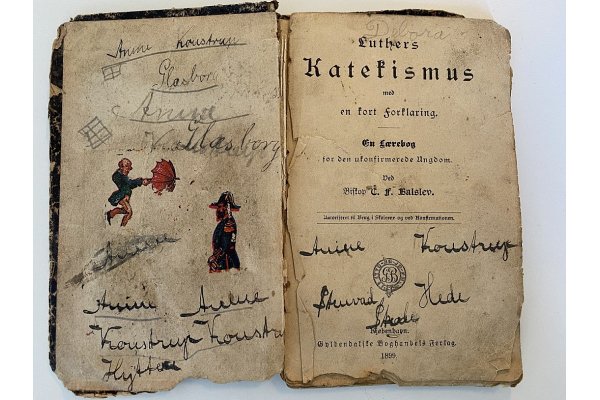 Anine Koustrup
Glasborg
Anine
Glasborg
Anine
Anine Anine
Koustrup Koustru
Hytten
Debora
Luthers
Katekismus
med
en kort Forklaring.
En Lærebog
for den ukonfirmerede Ungdom.
Ved
Biskop C. F. Balslev.
Autoriseret til Brug i Skolerne og ved Konfirmationen.
Anine Koustrup
Stenvad Hede
København.
Gyldendalske Boghandels Forlag.
1899.